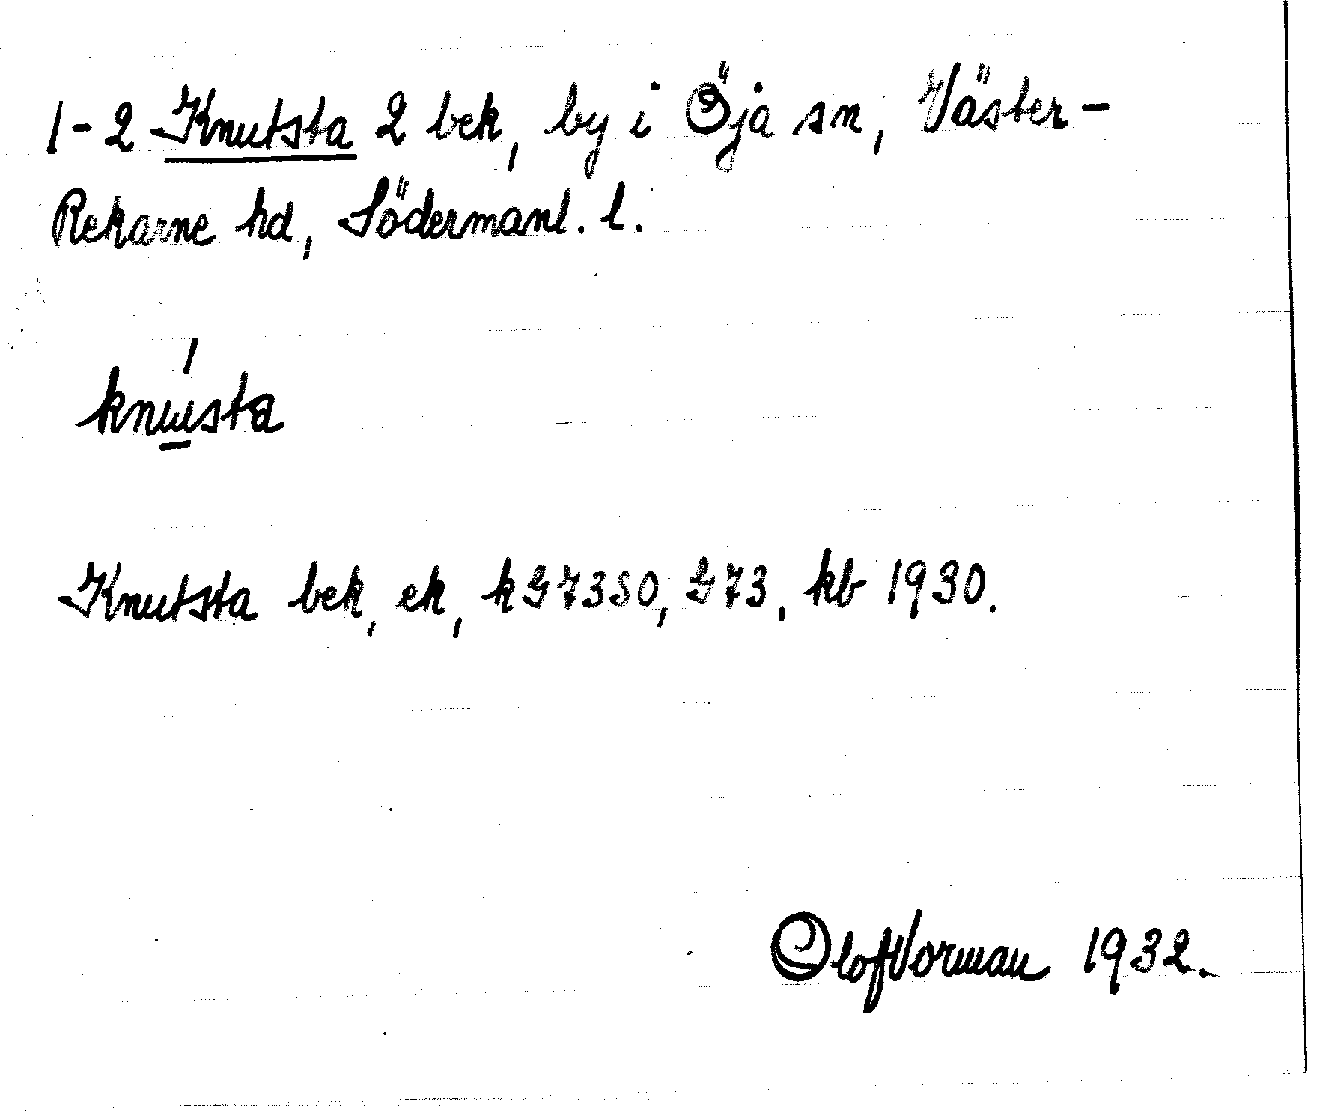 1-2 Knutsta 2 bek, by i Öja sn, Väster-
Rekarne hd, Södermanl. l.
knusta
Knutsta bek, ek, kG7350, G73, kb 1930.
Olof Vorman 1932.